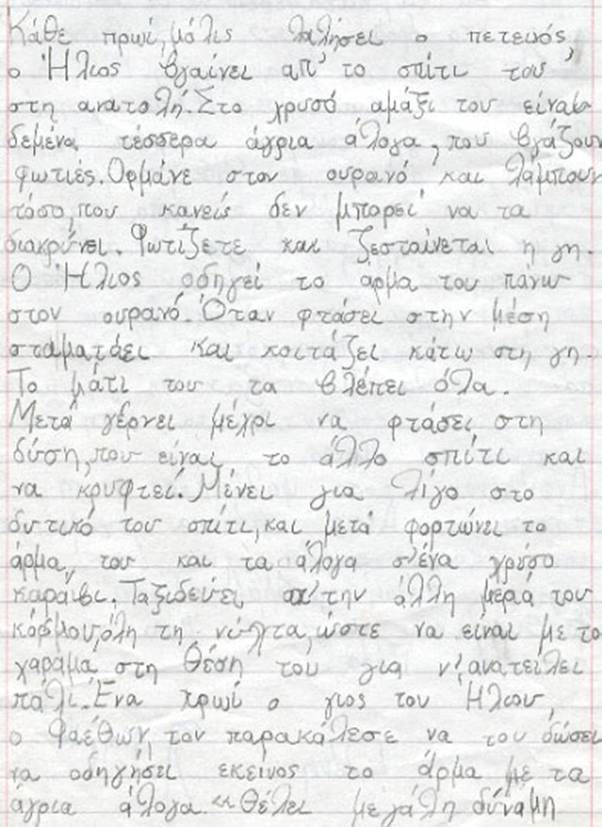 Κάθε πρωί, μόλις λαλήσει ο πετεινός,
ο Ήλιος βγαίνει απ' το σπίτι του
στη ανατολή. Στο χρυσό αμάξι του είναι
δεμένα τέσσερα άγρια άλογα, που βγάζουν
φωτιές. Ορμάνε στον ουρανό και λάμπουν
τόσο, που κανείς δεν μπορεί να τα
διακρύνει. Φωτίζετε και ζεσταίνεται η γη.
Ο Ήλιος οδηγεί το άρμα του πάνω
στον ουρανό. Όταν φτάσει στην μέση
σταματάει και κοιτάζει κάτω στη γη.
Το μάτι του τα βλέπει όλα.
Μετά γέρνει μέχρι να φτάσει στη
δύση, που είναι το άλλο σπίτι και
να κρυφτεί. Μένει για λίγο στο
δυτικό του σπίτι, και μετά φορτώνει το
άρμα του και τα άλογα σ'ένα χρύσο
καράβι. Ταξιδεύει απ' την άλλη μεριά του
κόσμου, όλη τη νύχτα, ώστε να είναι με το
χάραμα στη θέση του για ν' ανατείλει
πάλι. Ένα πρωί ο γιος του Ήλιου,
ο Φαέθων, τον παρακάλεσε να του δώσει
να οδηγήσει εκείνος το άρμα με τα
άγρια άλογα. «Θέλει μεγάλη δύναμη